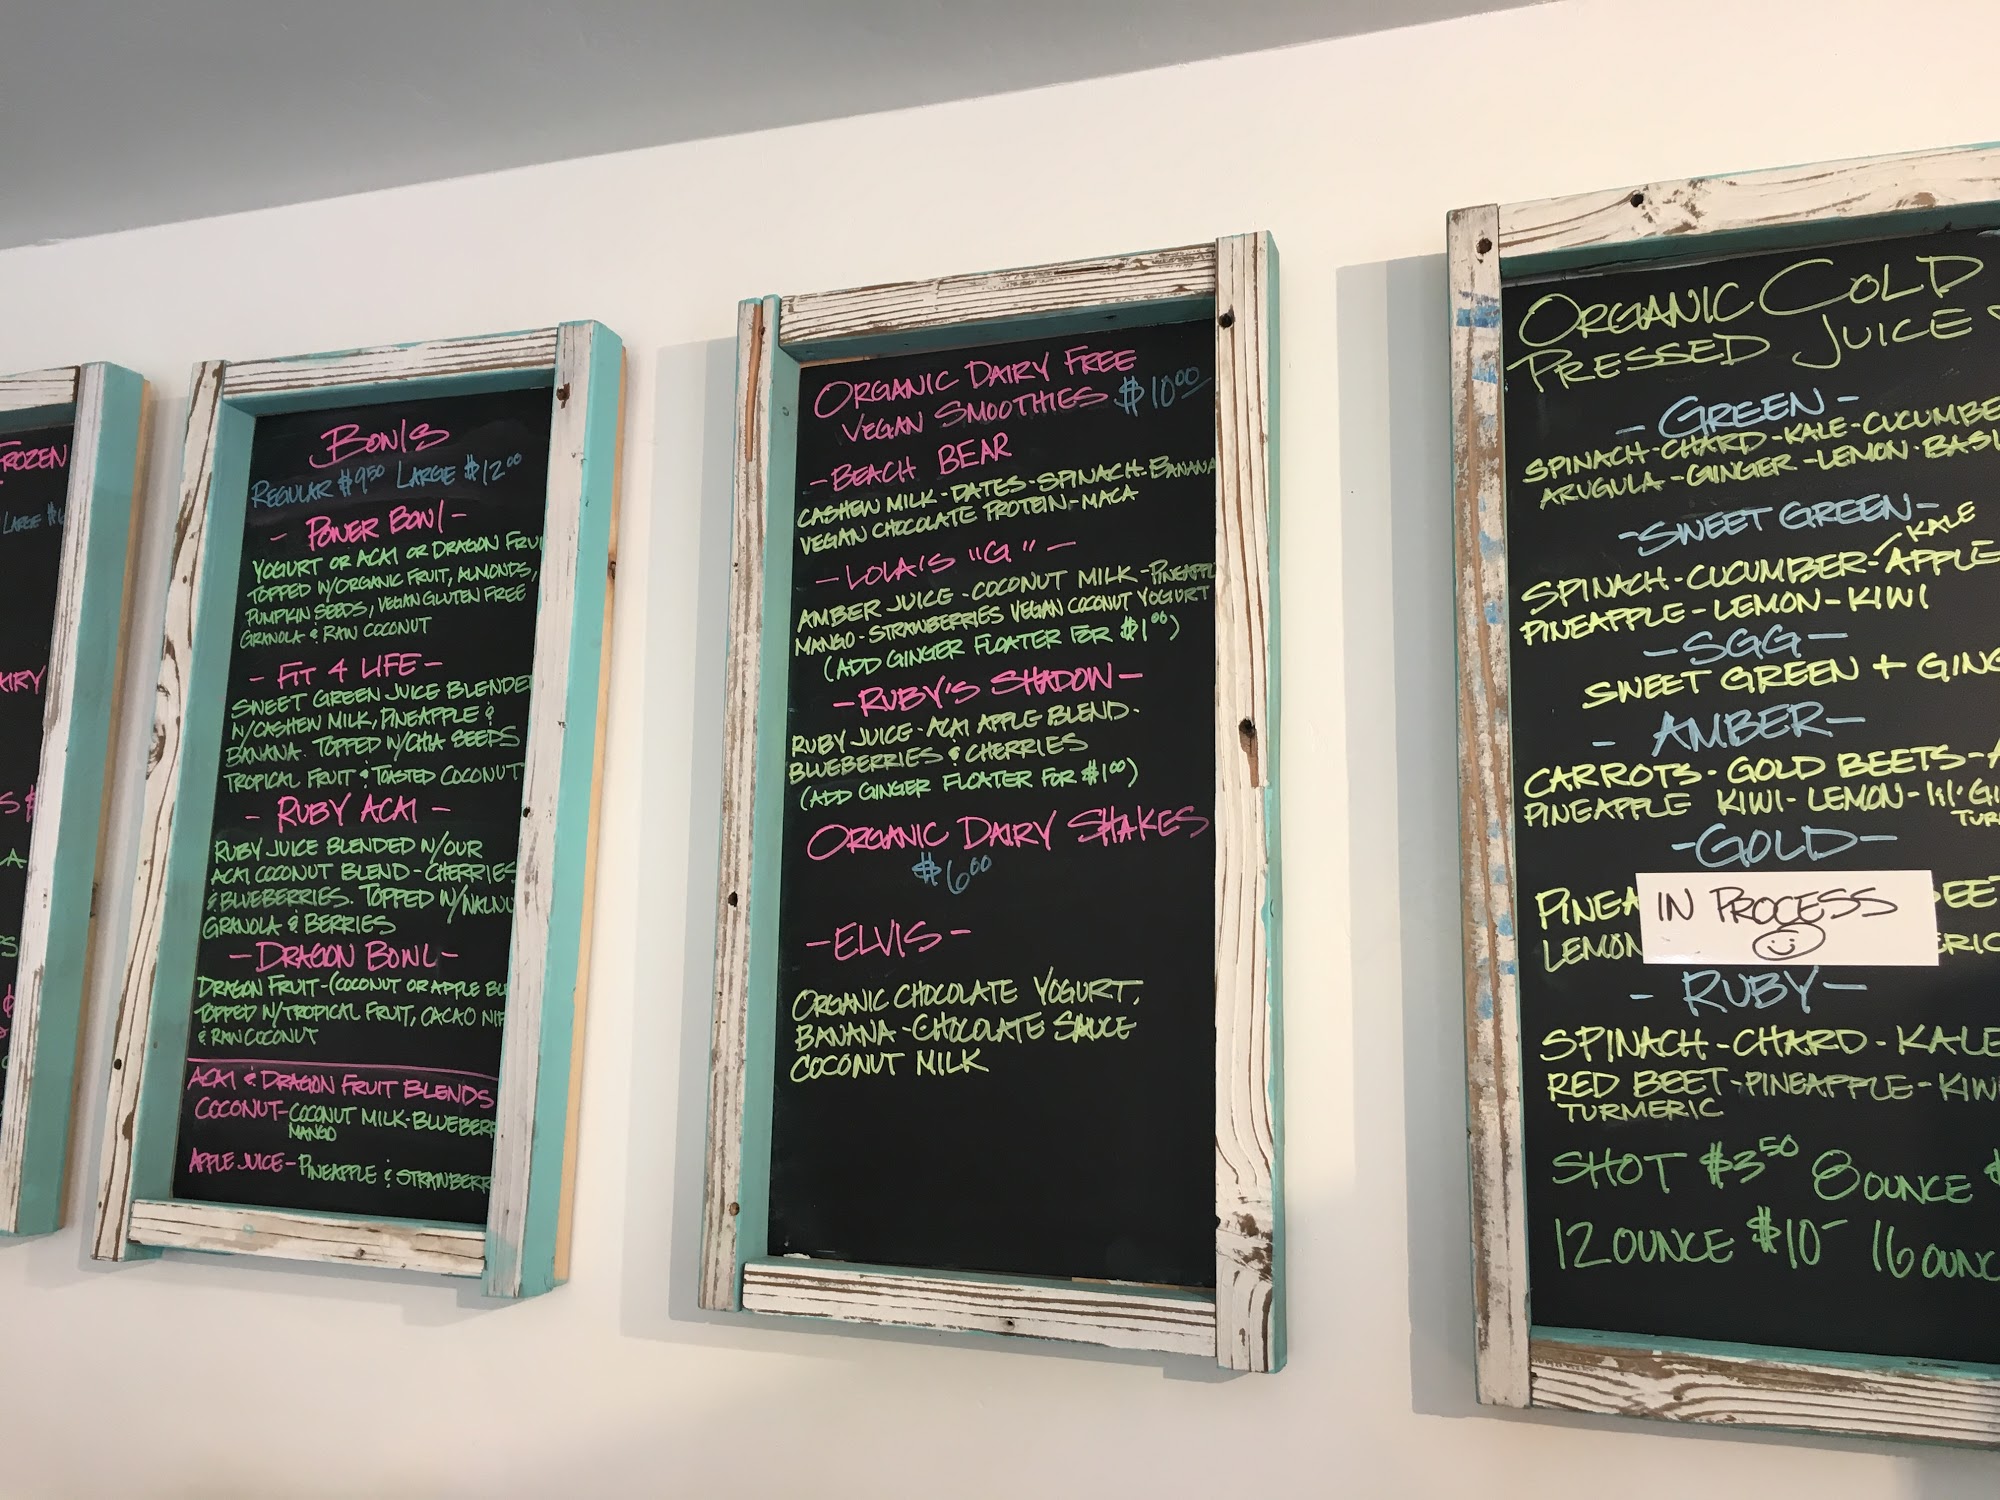 FROZEN
LARGE
BOWLS
REGULAR $9.50 LARGE $12.00
- POWER BOWL -
YOGURT OR ACAI OR DRAGON
TOPPED W/ORGANIC FRUIT, ALMONDS,
PUMPKIN SEEDS, VEGAN GLUTEN FREE
GRANOLA & RAW COCONUT
- FIT 4 LIFE -
SWEET GREEN JUICE
W/CASHEW MILK, PINEAPPLE &
BANANA. TOPPED W/CHIA SEEDS
TROPICAL FRUIT & TOASTED COCONUT
- RUBY ACAI -
RUBY JUICE BLENDED W/OUR
ACAI COCONUT BLEND - CHERRIES
& BLUEBERRIES. TOPPED
GRANOLA & BERRIES
- DRAGON BOWL -
DRAGON FRUIT - (COCONUT OR APPLE
TOPPED W/TROPICAL FRUIT, CACAO
& RAW COCONUT
ACAI & DRAGON FRUIT BLENDS
COCONUT - COCONUT MILK -
MANGO
APPLE JUICE - PINEAPPLE &
ORGANIC DAIRY FREE
VEGAN SMOOTHIES $10.00
- BEACH BEAR
CASHEW MILK - DATES - SPINACH - BANANA
VEGAN CHOCOLATE PROTEIN - MACA
- LOLA'S "G" -
AMBER JUICE - COCONUT MILK -
MANGO - STRAWBERRIES VEGAN COCONUT YOGURT
(ADD GINGER FLOATER FOR $1.00)
- RUBY'S SHADOW -
RUBY JUICE - ACAI APPLE BLEND -
BLUEBERRIES & CHERRIES
(ADD GINGER FLOATER FOR $1.00)
ORGANIC DAIRY SHAKES
$6.00
- ELVIS -
ORGANIC CHOCOLATE YOGURT,
BANANA - CHOCOLATE SAUCE
COCONUT MILK
ORGANIC COLD
PRESSED JUICE
- GREEN -
SPINACH - CHARD - KALE -
ARUGULA - GINGER - LEMON -
- SWEET GREEN -
KALE
SPINACH - CUCUMBER - APPLE
PINEAPPLE - LEMON - KIWI
- SGG -
SWEET GREEN +
- AMBER -
CARROTS - GOLD BEETS -
PINEAPPLE KIWI - LEMON -
- GOLD -
IN PROCESS
LEMON
- RUBY -
SPINACH - CHARD - KALE
RED BEET - PINEAPPLE -
TURMERIC
SHOT $3.50 8 OUNCE
12 OUNCE $10- 16